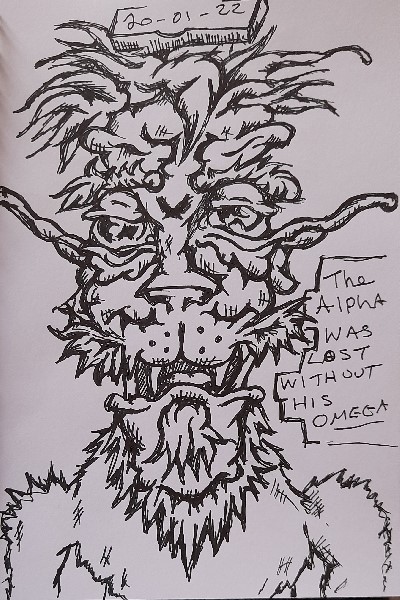 20-01-22
The
AlphA
WAS
LOST
WITHOUT
HIS
OMEGA